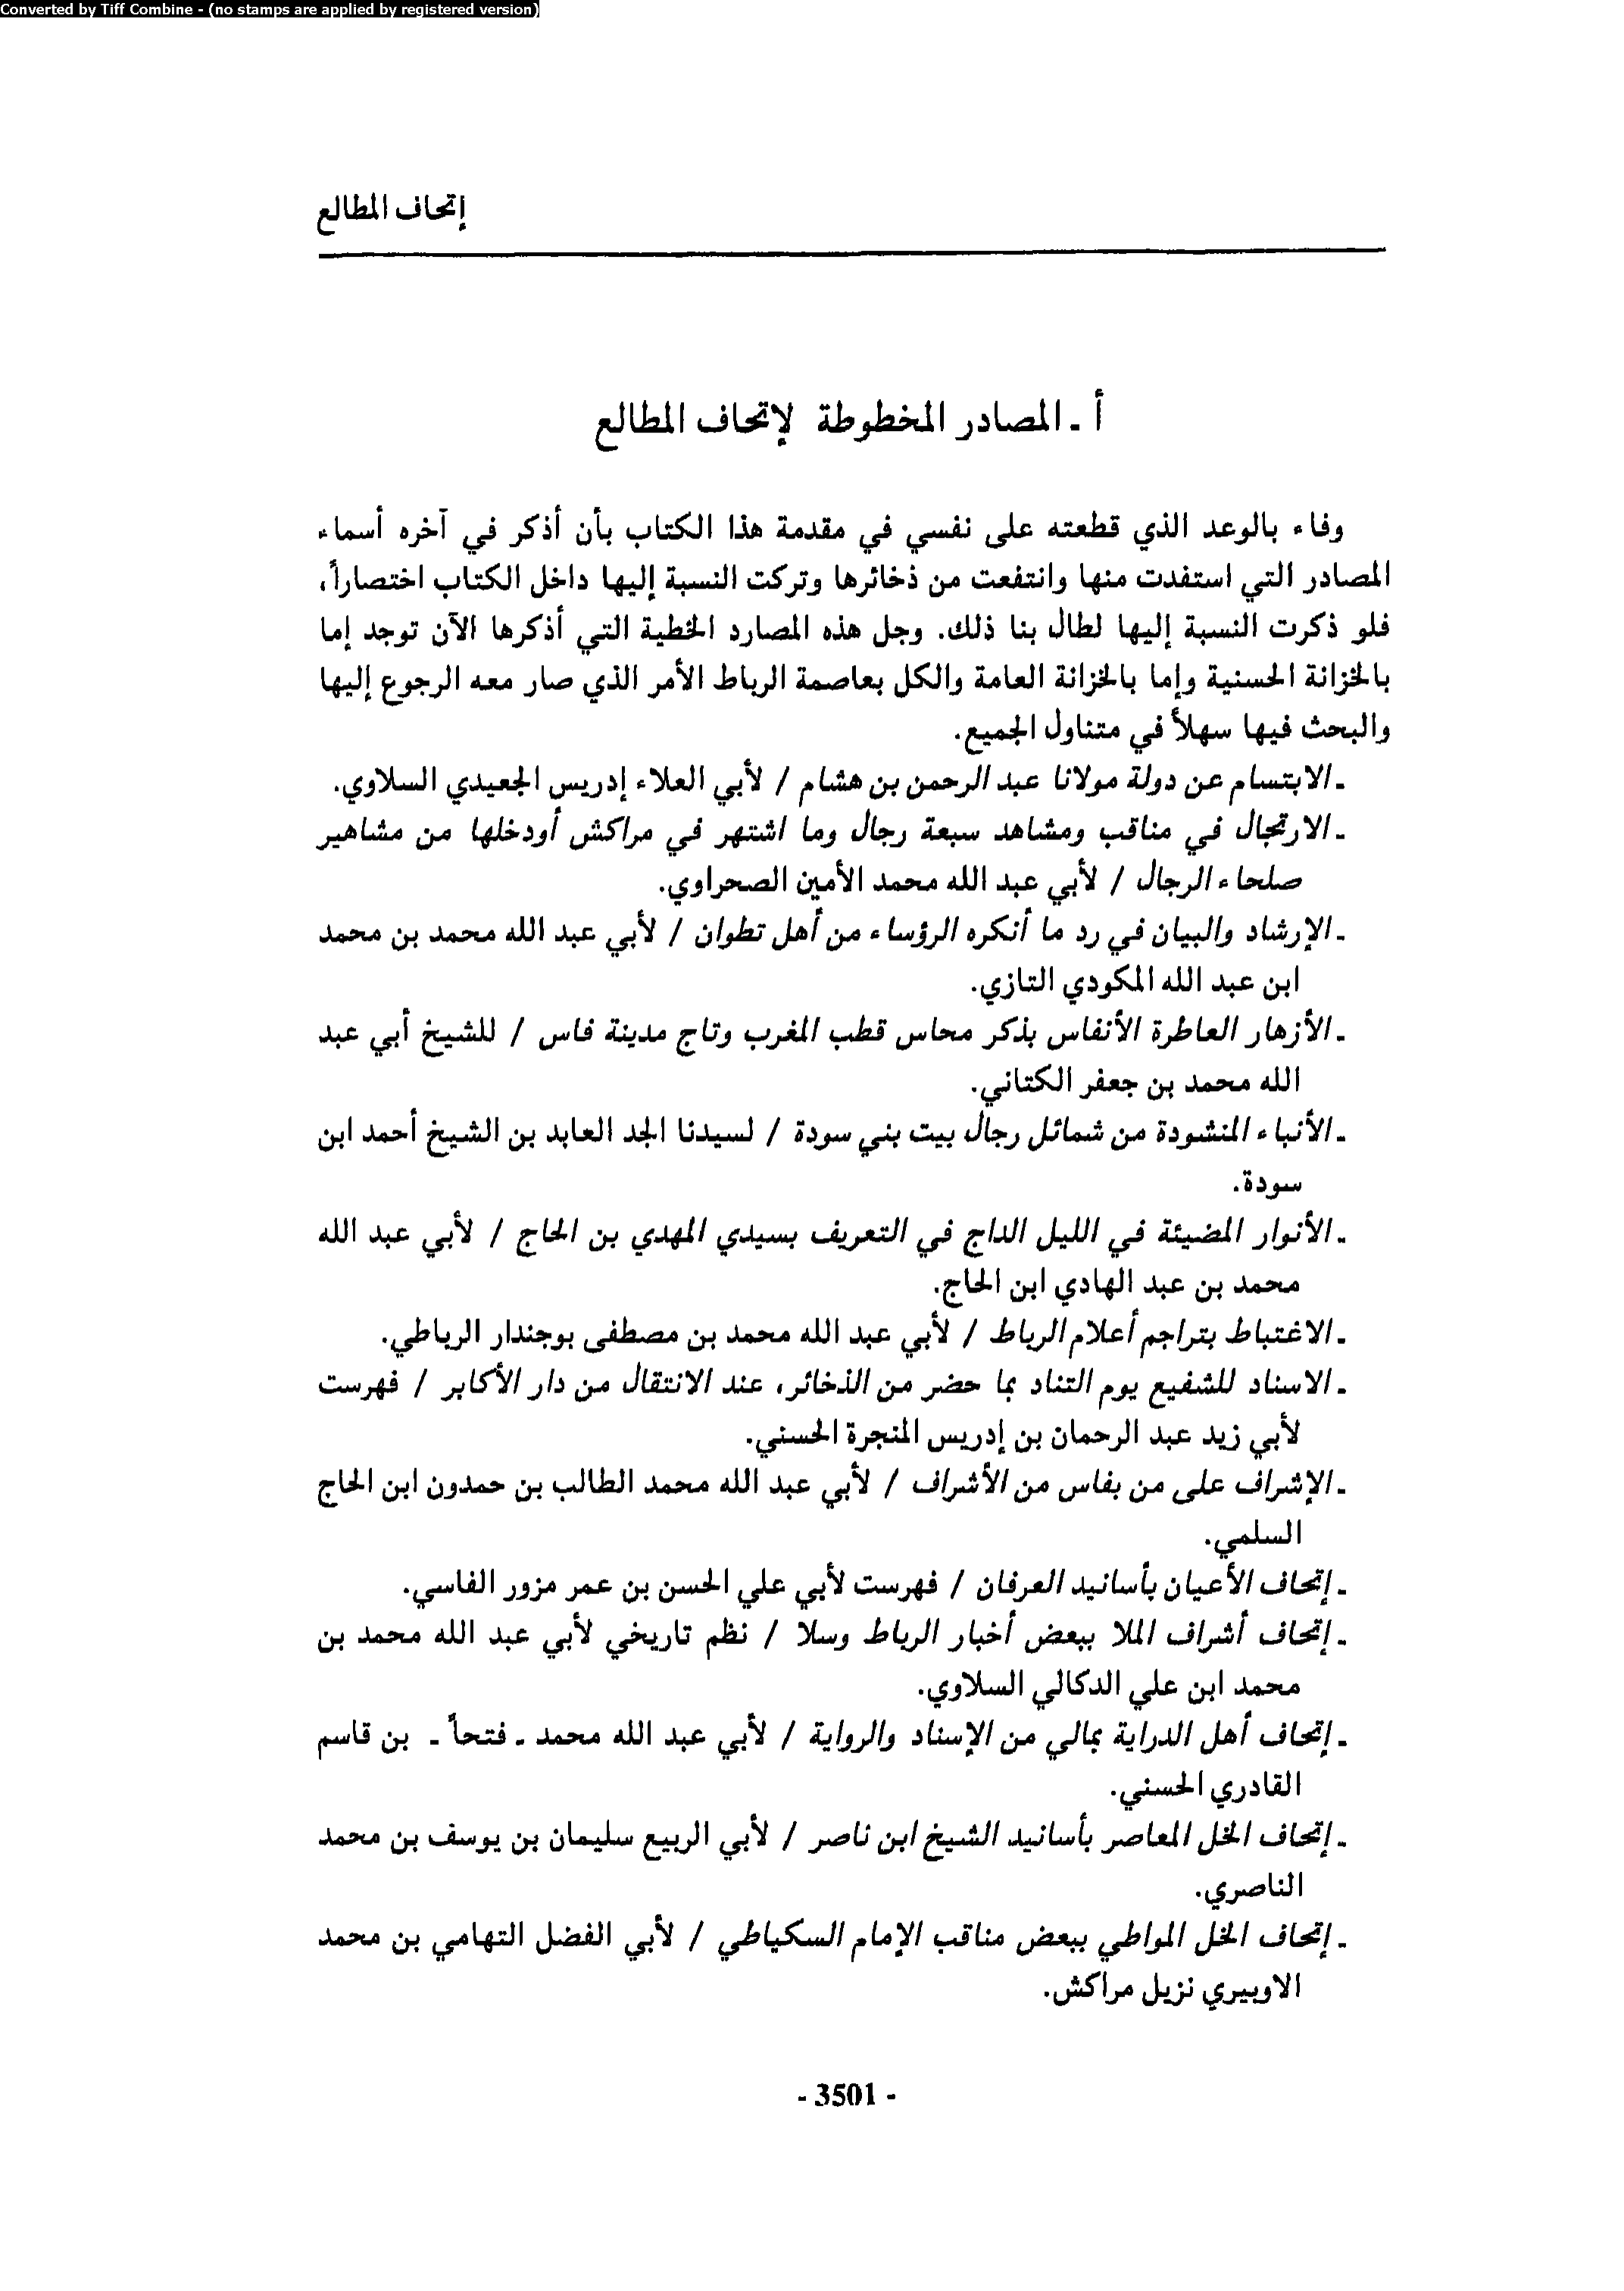 Converted by Tiff Combine - (no stamps are applied by registered version)
إتحاف المطالع
أ ـ المصادر المخطوطة لإتحاف المطالع
وفاء بالوعد الذي قطعته على نفسي في مقدمة هذا الكتاب بأن أذكر في آخره أسماء
المصادر التي استفدت منها وانتفعت من ذخائرها وتركت النسبة إليها داخل الكتاب اختصاراً،
فلو ذكرت النسبة إليها لطال بنا ذلك. وجل هذه المصارد الخطية التي أذكرها الآن توجد إما
بالخزانة الحسنية وإما بالخزانة العامة والكل بعاصمة الرباط الأمر الذي صار معه الرجوع إليها
والبحث فيها سهلاً في متناول الجميع.
ـ الابتسام عن دولة مولانا عبد الرحمن بن هشام / لأبي العلاء إدريس الجعيدي السلاوي.
ـ الارتجال في مناقب ومشاهد سبعة رجال وما اشتهر في مراكش أودخلها من مشاهير
صلحاء الرجال / لأبي عبد الله محمد الأمين الصحراوي.
ـ الإرشاد والبيان في رد ما أنكره الرؤساء من أهل تطوان / لأبي عبد الله محمد بن محمد
ابن عبد الله المكودي التازي.
ـ الأزهار العاطرة الأنفاس بذكر محاس قطب المغرب وتاج مدينة فاس / للشيخ أبي عبد
الله محمد بن جعفر الكتاني.
ـ الأنباء المنشودة من شمائل رجال بيت بني سودة / لسيدنا الجد العابد بن الشيخ أحمد ابن
سودة.
ـ الأنوار المضيئة في الليل الداج في التعريف بسيدي المهدي بن الحاج / لأبي عبد الله
محمد بن عبد الهادي ابن الحاج.
ـ الاغتباط بتراجم أعلام الرباط / لأبي عبد الله محمد بن مصطفى بوجندار الرباطي.
ـ الاسناد للشفيع يوم التناد بما حضر من الذخائر، عند الانتقال من دار الأكابر / فهرست
لأبي زيد عبد الرحمان بن إدريس المنجرة الحسني.
ـ الإشراف على من بفاس من الأشراف / لأبي عبد الله محمد الطالب بن حمدون ابن الحاج
السلمي.
ـ إتحاف الأعيان بأسانيد العرفان / فهرست لأبي علي الحسن بن عمر مزور الفاسي.
ـ إتحاف أشراف الملا ببعض أخبار الرباط وسلا / نظم تاريخي لأبي عبد الله محمد بن
محمد ابن علي الدكالي السلاوي.
ـ إتحاف أهل الدراية بمالي من الإسناد والرواية / لأبي عبد الله محمد ـ فتحاً ـ بن قاسم
القادري الحسني.
ـ إتحاف الخل المعاصر بأسانيد الشيخ ابن ناصر / لأبي الربيع سليمان بن يوسف بن محمد
الناصري.
ـ إتحاف الخل المواطي ببعض مناقب الإمام السكياطي / لأبي الفضل التهامي بن محمد
الاوبيري نزيل مراكش.
- 3501 -